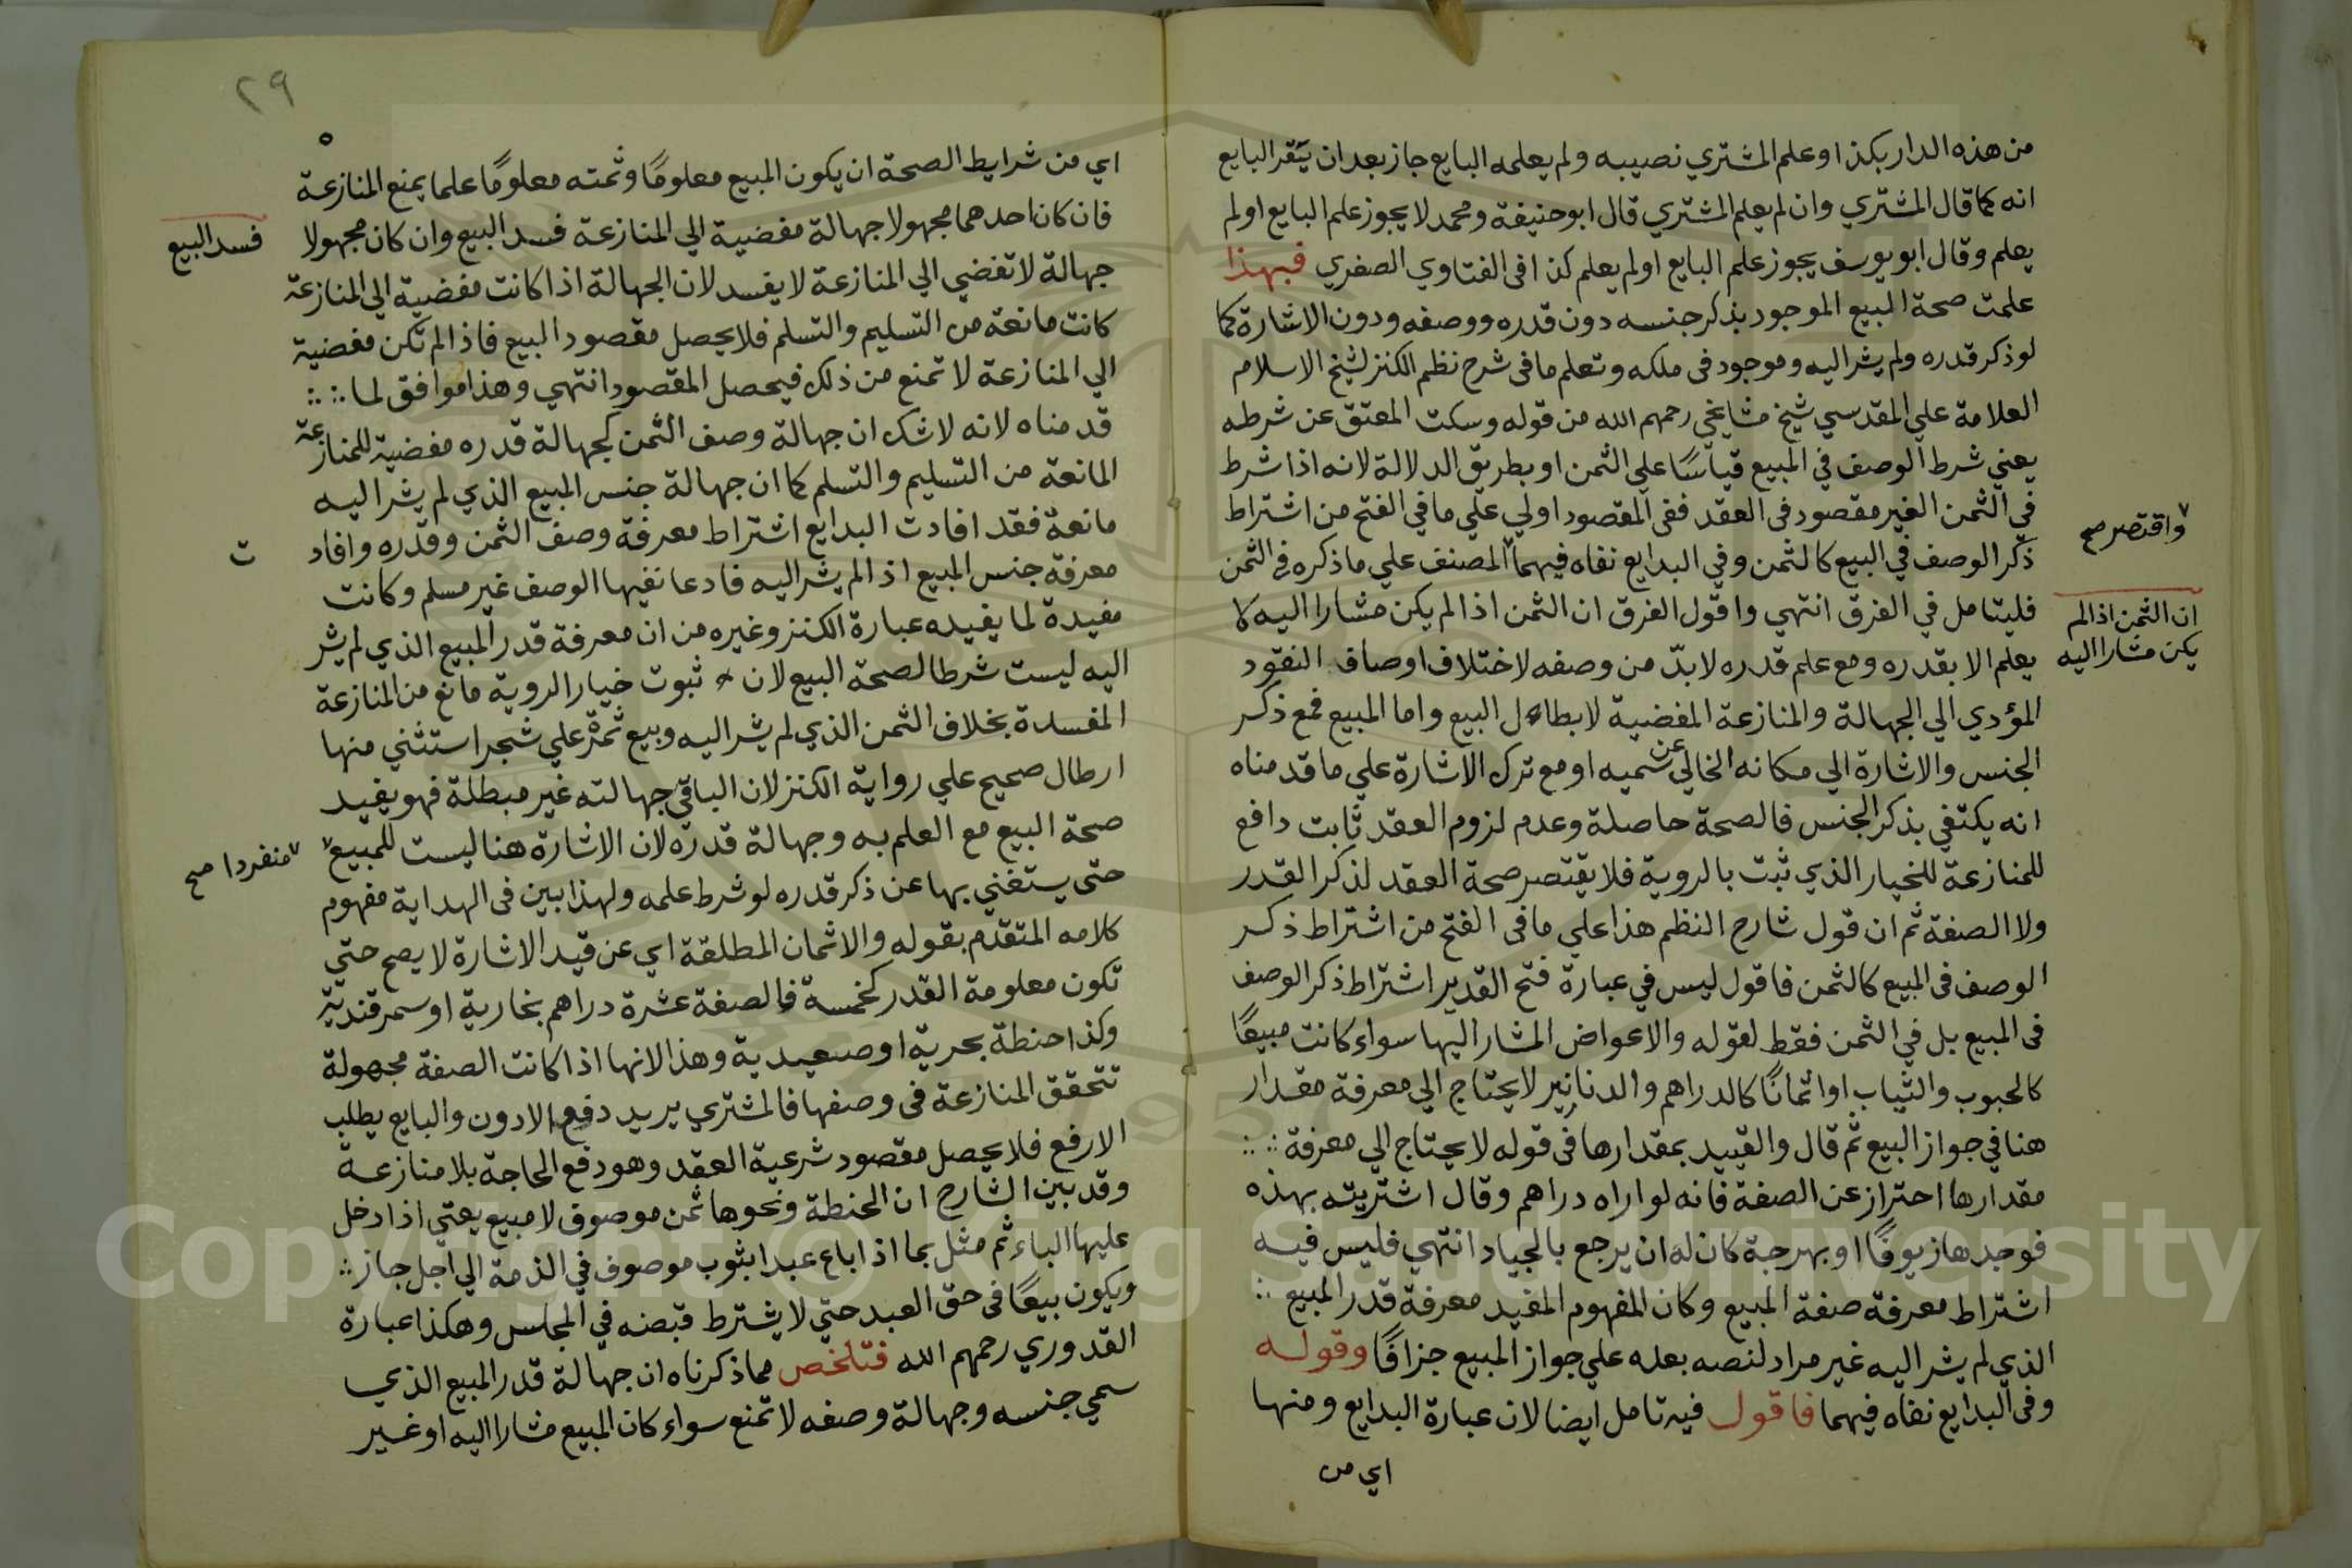 من هذه الدار بكذا وعلم المشتري نصيبه ولم يعلمه البايع جاز بعد ان يقر البايع
انه كما قال المشتري وان لم يعلم المشتري قال ابو حنيفة ومحمد لا يجوز علم البايع او لم
يعلم وقال ابو يوسف يجوز علم البايع او لم يعلم كذا في الفتاوي الصغري فبهذا
علمت صحة البيع الموجود بذكر جنسه دون قدره ووصفه ودون الاشارة كما
لو ذكر قدره ولم يشر اليه وموجود في ملكه وتعلم ما في شرح نظم الكنز لشيخ الاسلام
العلامة علي المقدسي شيخ مشايخي رحمهم الله من قوله وسكت المعتق عن شرطه
يعني شرط الوصف في المبيع قياسًا علي الثمن او بطريق الدلالة لانه اذا شرط
في الثمن الغير مقصود في العقد ففي المقصود اولي علي ما في الفتح من اشتراط
ذكر الوصف في البيع كالثمن وفي البدايع نفاه فيهما المصنف علي ما ذكره في الثمن
واقتصر صح
فليتامل في الفرق انتهي واقول الفرق ان الثمن اذا لم يكن مشارا اليه لا
ان الثمن اذا لم
يكن مشارا اليه
يعلم الا بقدره ومع علم قدره لا بدّ من وصفه لاختلاف اوصاف النقود
المؤدي الي الجهالة والمنازعة المفضية لابطال البيع واما المبيع فمع ذكر
الجنس والاشارة الي مكانه الخالي عن سميه او مع ترك الاشارة علي ما قدمناه
انه يكتفي بذكر الجنس فالصحة حاصلة وعدم لزوم العقد ثابت دافع
للمنازعة للخيار الذي ثبت بالروية فلا يقتصر صحة العقد لذكر القدر
ولا الصفة ثم ان قول شارح النظم هذا علي ما في الفتح من اشتراط ذكر
الوصف في المبيع كالثمن فاقول ليس في عبارة فتح القدير اشتراط ذكر الوصف
في المبيع بل في الثمن فقط لقوله والاعواض المشار اليها سواء كانت مبيعًا
كالحبوب والثياب او اثمانًا كالدراهم والدنانير لا يحتاج الي معرفة مقدار
هنا في جواز البيع ثم قال والقييد بمقدارها في قوله لا يحتاج الي معرفة
مقدارها احتراز عن الصفة فانه لو اراه دراهم وقال اشتريته بهذه
فوجدها زيوفًا او بهرجة كان له ان يرجع بالجياد انتهي فليس فيه
اشتراط معرفة صفة المبيع وكان المفهوم المفيد معرفة قدر المبيع
الذي لم يشر اليه غير مراد لنصه بعده علي جواز المبيع جزافًا وقوله
وفي البدايع نفاه فيهما فاقول فيه تامل ايضا لان عبارة البدايع ومنها
اي من
٢٩
اي من شرايط الصحة ان يكون المبيع معلومًا وثمنه معلومًا علما يمنع المنازعة
فان كان احدهما مجهولا جهالة مفضية الي المنازعة فسد البيع وان كان مجهولا
فسد البيع
جهالة لا تفضي الي المنازعة لا يفسد لان الجهالة اذا كانت مفضية الي المنازعة
كانت مانعة من التسليم والتسلم فلا يحصل مقصود البيع فاذا لم تكن مفضية
الي المنازعة لا تمنع من ذلك فيحصل المقصود انتهي وهذا موافق لما
قدمناه لانه لا شك ان جهالة وصف الثمن كجهالة قدره مفضية للمنازعة
المانعة من التسليم والتسلم كما ان جهالة جنس المبيع الذي لم يشر اليه
مانعة فقد افادت البدايع اشتراط معرفة وصف الثمن وقدره وافاد
ت
معرفة جنس المبيع اذا لم يشر اليه فادعا نفيها الوصف غير مسلم وكانت
مفيدة لما يفيده عبارة الكنز وغيره من ان معرفة قدر المبيع الذي لم يشر
اليه ليست شرطا لصحة البيع لان ثبوت خيار الروية مانع من المنازعة
المفسدة بخلاف الثمن الذي لم يشر اليه وبيع ثمرة علي شجر استثني منها
ارطال صحيح علي رواية الكنز لان الباقي جهالته غير مبطلة فهو يفيد
صحة البيع مع العلم به وجهالة قدره لان الاشارة هنا ليست للمبيع
منفردا صح
حتي يستغني بها عن ذكر قدره لو شرط علمه ولهذا بين في الهداية مفهوم
كلامه المتقدم بقوله والاثمان المطلقة اي عن قيد الاشارة لا يصح حتي
تكون معلومة القدر كخمسة والصفة عشرة دراهم بخارية او سمرقندية
وكذا حنطة بحرية او صعيدية وهذا لانها اذا كانت الصفة مجهولة
تتحقق المنازعة في وصفها فالمشتري يريد دفع الادون والبايع يطلب
الارفع فلا يحصل مقصود شرعية العقد وهو دفع الحاجة بلا منازعة
وقد بين الشارح ان الحنطة ونحوها ثمن موصوف لا مبيع يعني اذا دخل
عليها الباء ثم مثل بما اذا باع عبدا بثوب موصوف في الذمة الي اجل جاز
ويكون بيعًا في حق العبد حتي لا يشترط قبضه في المجلس وهكذا عبارة
القدوري رحمهم الله فتلخص مما ذكرناه ان جهالة قدر المبيع الذي
سمي جنسه وجهالة وصفه لا تمنع سواء كان المبيع مشارا اليه او غير
Copyright © King Saud University